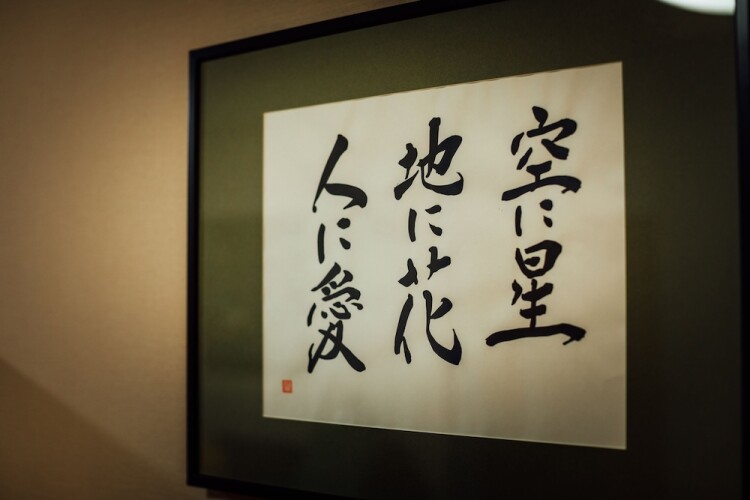 空に星
地に花
人に愛